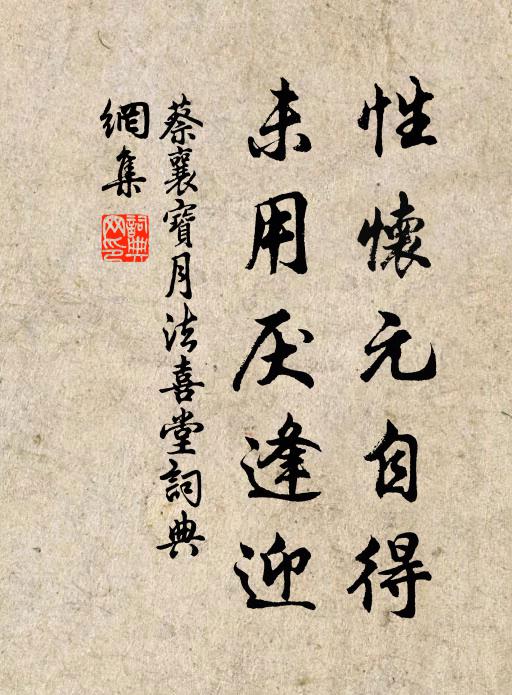 性懷元自得
未用厌逢迎
蔡襄寶月法喜堂詞典
網集
詞典网印